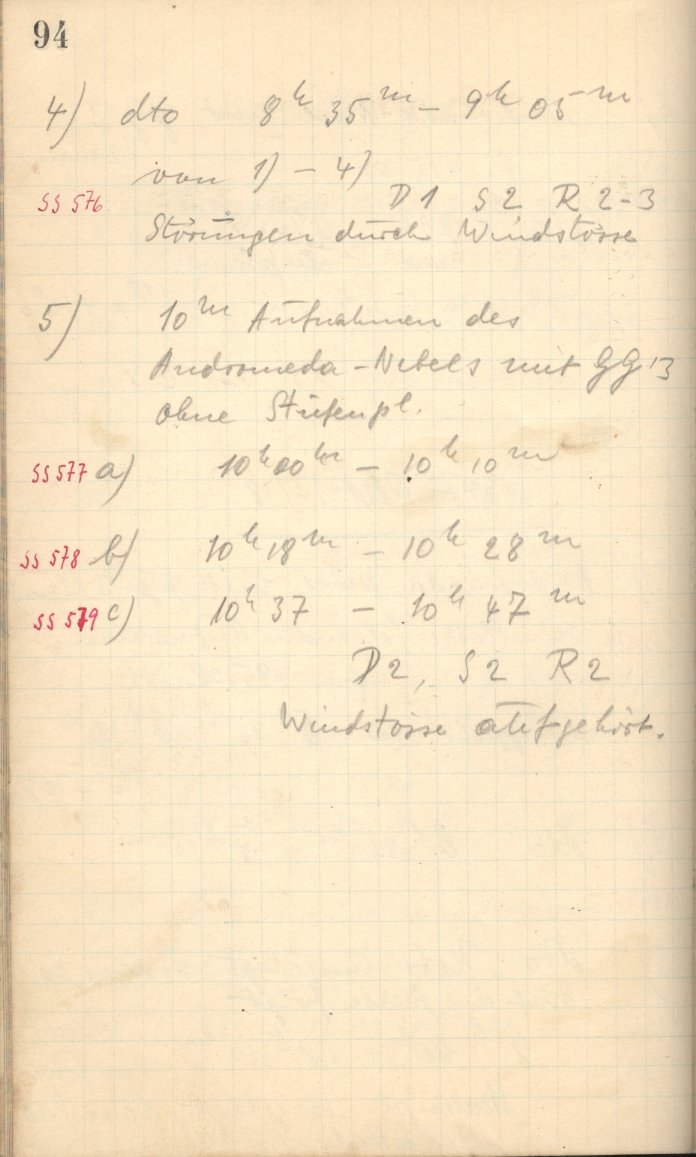 94
4) dto 8h 35m – 9h 05m
von 1) – 4)
SS 576 D1 S2 R2-3
Störungen durch Windstösse
5) 10m Aufnahmen des
Andromeda-Nebels mit GG 13
ohne Stufenpl.
SS 577 a) 10h 00m – 10h 10m
SS 578 b) 10h 18m – 10h 28m
SS 579 c) 10h 37 – 10h 47m
D2, S2 R2
Windstösse aufgehört.